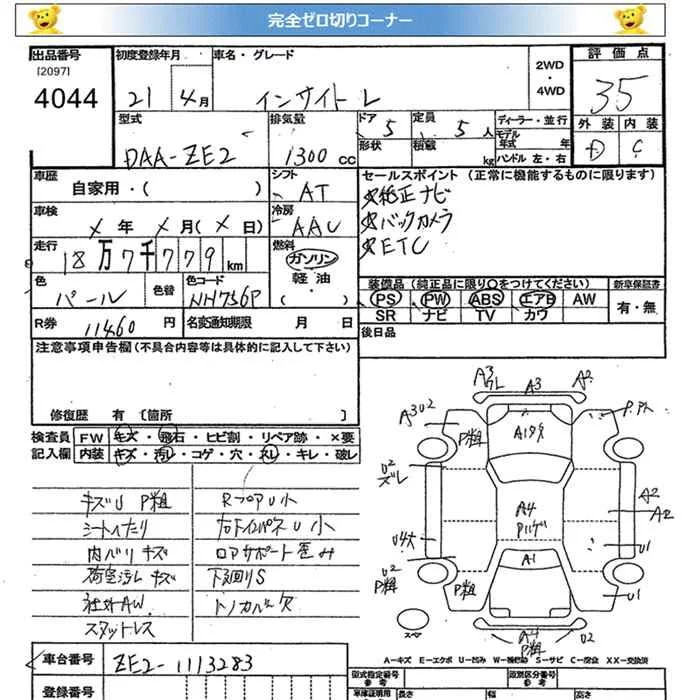 完全ゼロ切りコーナー
出品番号 初度登録年月 車名・グレード 2WD・4WD 評価点
[2097]
4044 21 4月 インサイト L 35
型式 排気量 ドア 5 定員 5人 ディーラー・並行 外装 内装
DAA-ZE2 1300cc 形状 積載 kg モデル年式 年 D C
ハンドル 左・右
車歴 シフト セールスポイント (正常に機能するものに限ります)
自家用・( ) AT 純正ナビ
車検 冷房 バックカメラ
X年 X月(X日) AAC ETC
走行 燃料
18万7千779km ガソリン 軽油・( )
色 色替 色コード 装備品(純正品に限り○をつけてください) 新車保証書
パール NH756P PS PW ABS エアB AW 有・無
SR ナビ TV カワ
R券 11460円 名変通知期限 月 日 後日品
注意事項申告欄(不具合内容等は具体的に記入して下さい)
修復歴 有 [箇所 ]
検査員記入欄 FW キズ・飛石・ヒビ割・リペア跡・×要
内装 キズ・汚レ・コゲ・穴・スレ・キレ・破レ
キズU P粗 RフロアU小
シートヘたり
内バリキズ ロアサポート歪み
荷室汚レ キズ 下回りS
社外AW トノカバー欠
スタットレス
A3 A3 A2
A3U2 P粗
A4
U2 A2
A1 U1
U2 P粗 P粗 U1
A4 P粗 U2
スペア
A-キズ E-エクボ U-凹み W-補修跡 S-サビ C-腐食 XX-交換済
車台番号 ZE2-1113283 型式指定番号 参考 類別区分番号 参考
登録番号 車庫証明用 長さ 幅 高さ